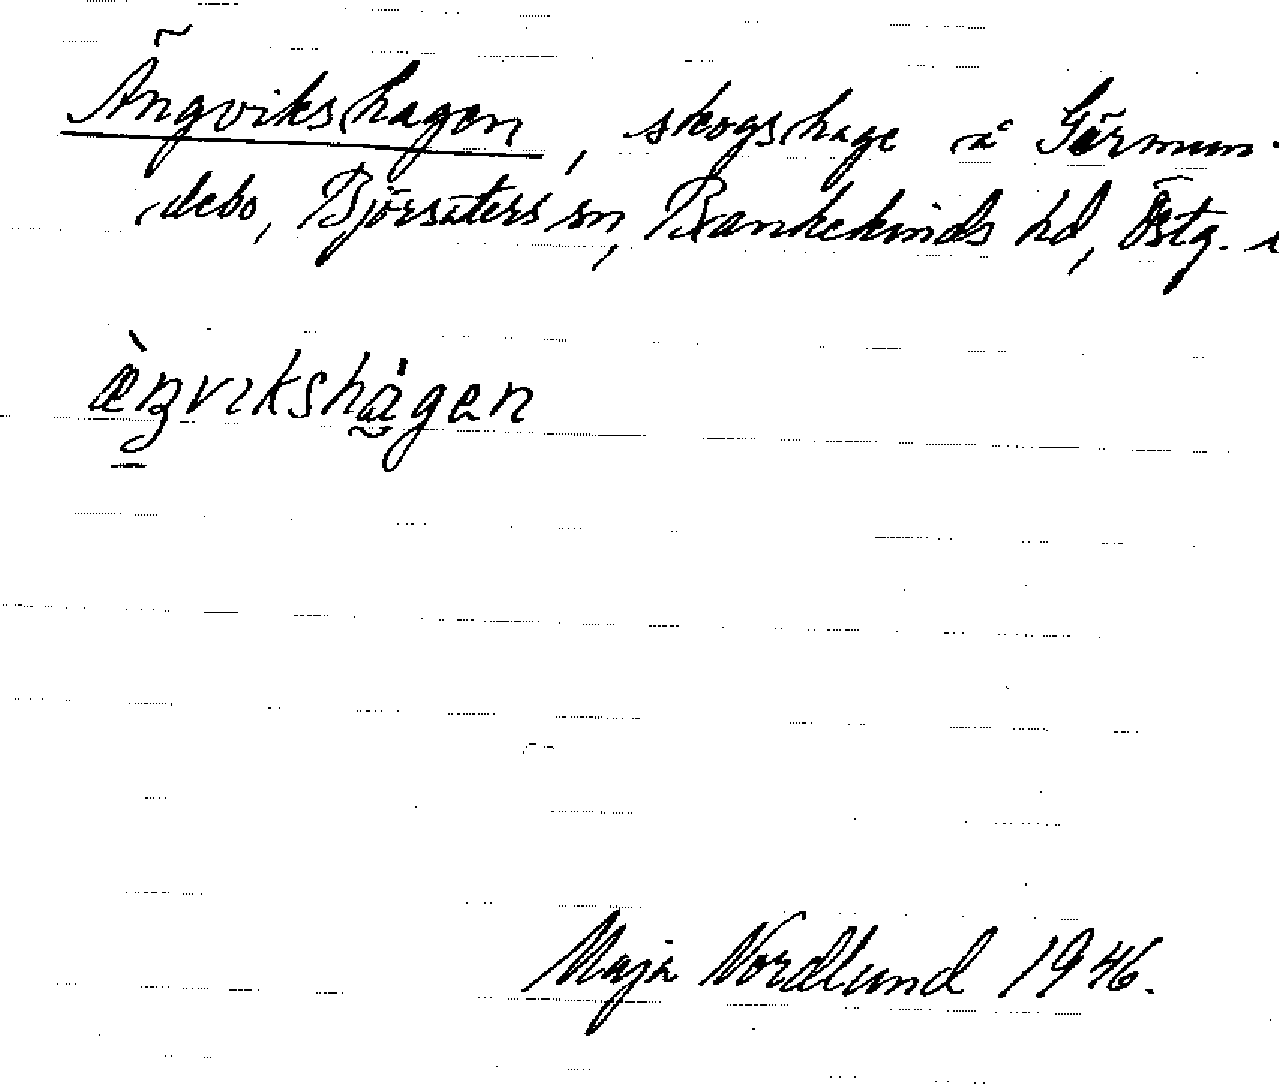 Ängvikshagen, skogshage å Germun-
debo, Björsäters sn, Bankekinds hd, Östg.
Maja Nordlund 1946.